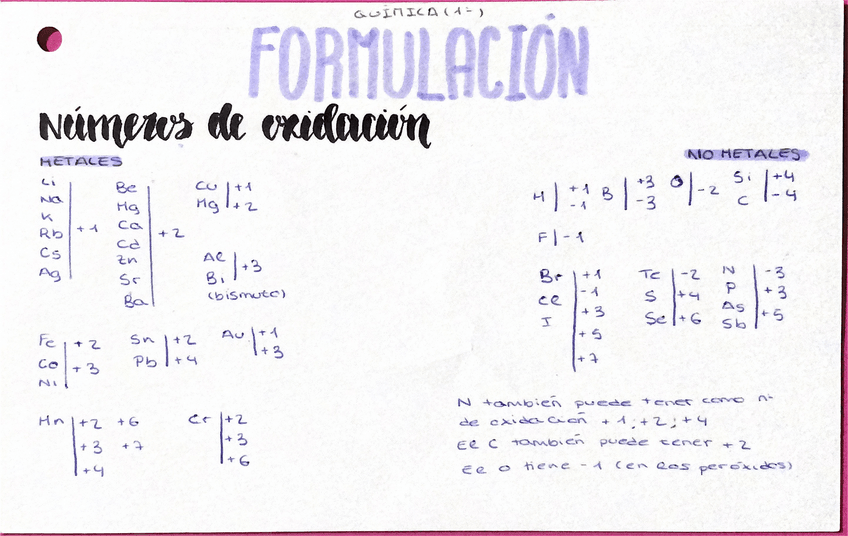 QUÍMICA (1-)
FORMULACIÓN
Números de oxidación
METALES
Li
Na
K
Rb
Cs
Ag
+1
Be
Mg
Ca
Cd
Zn
Sr
Ba
+2
Cu
Hg
+1
+2
Al
Bi
(bismuto)
+3
Fe
Co
Ni
+2
+3
Sn
Pb
+2
+4
Au
+1
+3
Mn
+2 +6
+3 +7
+4
Cr
+2
+3
+6
NO METALES
H
+1
-1
B
+3
-3
O
-2
Si
C
+4
-4
F -1
Br
Cl
I
+1
-1
+3
+5
+7
Te
S
Se
-2
+4
+6
N
P
As
Sb
-3
+3
+5
N también puede tener como n-
de oxidación +1; +2; +4
El C también puede tener +2
El O tiene -1 (en los peróxidos)